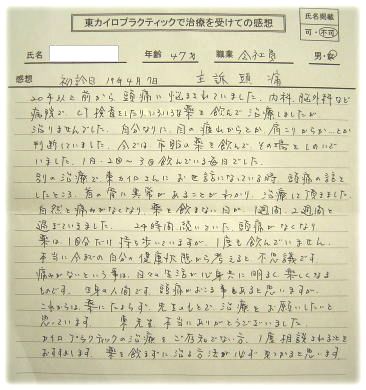 東カイロプラクティックで治療を受けての感想
氏名掲載
可・不可
氏名 年齢 47才 職業 会社員 男・女
感想 初診日 19年4月7日 主訴 頭痛
20年以上前から頭痛に悩まされていました。内科、脳外科など
病院で、CT検査をしたりいろいろな薬を飲んで治療しましたが
治りませんでした。自分なりに、目の疲れからとか、肩こりからか…とか
判断していました。今では市販の薬を飲んで、その場をしのいで
いました。1日・2回〜3回飲んでいる毎日でした。
別の治療で東カイロさんにお世話になっている時、頭痛の話を
したところ、首の骨に異常があることがわかり、治療して頂きました。
自然と痛みがなくなり、薬を飲まない日が、1週間、2週間と
過ぎていきました。24時間続いていた、頭痛がなくなり
薬は、1回分だけ持ち歩いていますが、1度も飲んでいません。
本当に今までの自分の健康状態から考えると不思議です。
痛みがないという事は、日々の生活が心身共に明るく楽しくなる
ものです。生身の人間です。頭痛がおこる事もあると思いますが、
これからは、薬にたよらず、先生のもとで、治療をお願いしたいと
思っています。東先生、本当にありがとうございました。
カイロプラクティックの治療をご存知でない方、1度相談されることを
おすすめします。薬を飲まずに治る方法が必ず見つかると思います